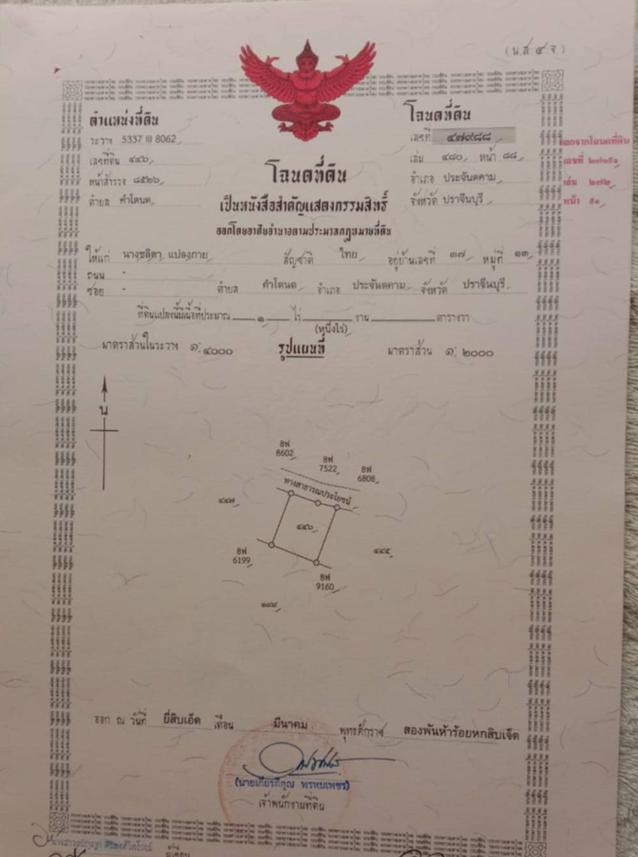 (น.ส. ๔ จ.)
ตำแหน่งที่ดิน
ระวาง 5337 III 8062
เลขที่ดิน ๔๔๖
หน้าสำรวจ ๘๕๒๖
ตำบล คำโตนด
โฉนดที่ดิน
เลขที่ ๔๗๙๘๘
เล่ม ๔๘๐ หน้า ๘๘
อำเภอ ประจันตคาม
จังหวัด ปราจีนบุรี
ออกจากโฉนดที่ดิน
เลขที่
เล่ม
หน้า ๕๑
โฉนดที่ดิน
เป็นหนังสือสำคัญแสดงกรรมสิทธิ์
ออกโดยอาศัยอำนาจตามประมวลกฎหมายที่ดิน
ให้แก่ นางชลิดา แปลงกาย สัญชาติ ไทย อยู่บ้านเลขที่ ๓๗ หมู่ที่ ๑๓
ถนน -
ซอย - ตำบล คำโตนด อำเภอ ประจันตคาม จังหวัด ปราจีนบุรี
ที่ดินแปลงนี้มีเนื้อที่ประมาณ ๑ ไร่ งาน ตารางวา
(หนึ่งไร่)
มาตราส่วนในระวาง ๑: ๔๐๐๐ รูปแผนที่ มาตราส่วน ๑: ๒๐๐๐
น
8ฬ
8602
8ฬ
7522
8ฬ
6808
ทางสาธารณประโยชน์
๔๔๗
๔๔๖
๔๔๕
8ฬ
6199
8ฬ
9160
ออก ณ วันที่ ยี่สิบเอ็ด เดือน มีนาคม พุทธศักราช สองพันห้าร้อยหกสิบเจ็ด
(นายเกียรติคุณ พรหมเพชร)
เจ้าพนักงานที่ดิน